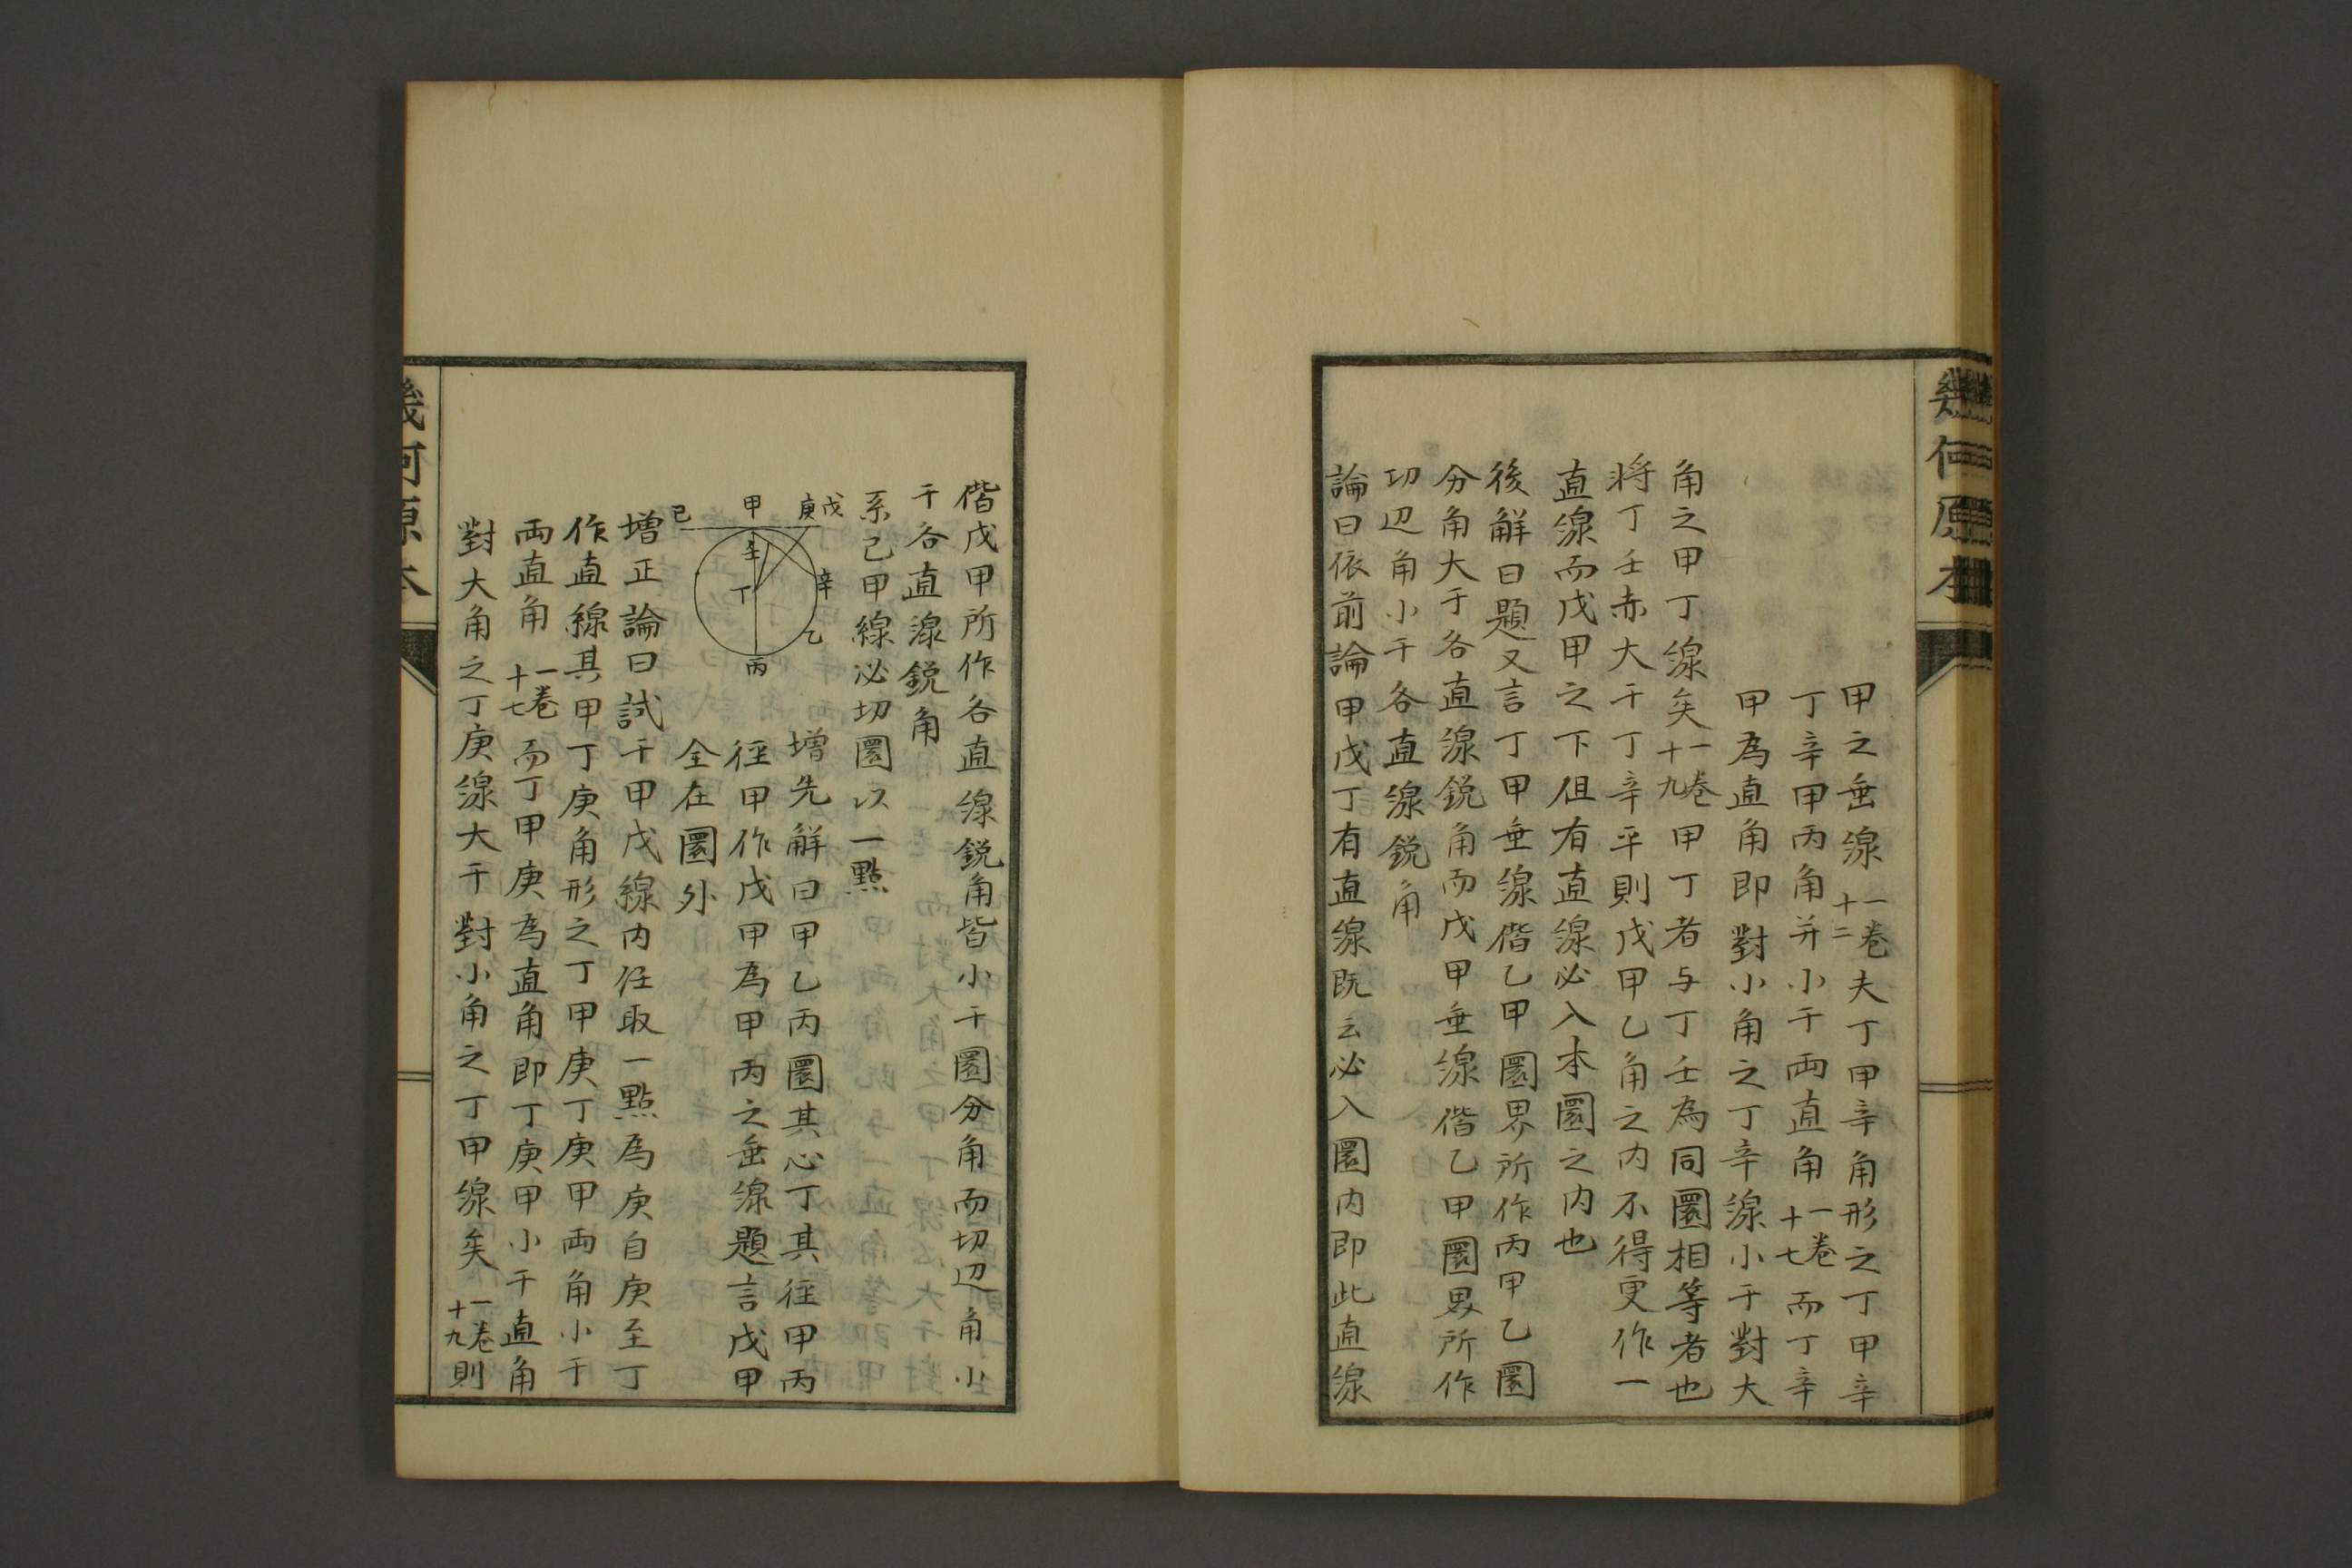 幾何原本
甲之垂線一卷十二夫丁甲辛角形之丁甲辛
丁辛甲丙角并小于両直角一卷十七而丁辛
甲為直角即對小角之丁辛線小于對大
角之甲丁線矣一卷十九甲丁者与丁壬為同圜相等者也
将丁壬赤大于丁辛平則戊甲乙角之内不得更作一
直線而戊甲之下但有直線必入本圜之内也
後解曰題又言丁甲垂線偕乙甲圜界所作丙甲乙圜
分角大于各直線鋭角而戊甲垂線偕乙甲圜界所作
切辺角小于各直線鋭角
論曰依前論甲戊丁有直線既云必入圜内即此直線
偕戊甲所作各直線鋭角皆小于圜分角而切辺角小
于各直線鋭角
系己甲線必切圜以一點
戊
庚
甲
己
壬
辛
丁
乙
丙
增先解曰甲乙丙圜其心丁其径甲丙
径甲作戊甲為甲丙之垂線題言戊甲
全在圜外
增正論曰試于甲戊線内任取一點為庚自庚至丁
作直線其甲丁庚角形之丁甲庚丁庚甲両角小于
両直角一卷十七而丁甲庚為直角即丁庚甲小于直角
對大角之丁庚線大于對小角之丁甲線矣一卷十九則
幾何原本